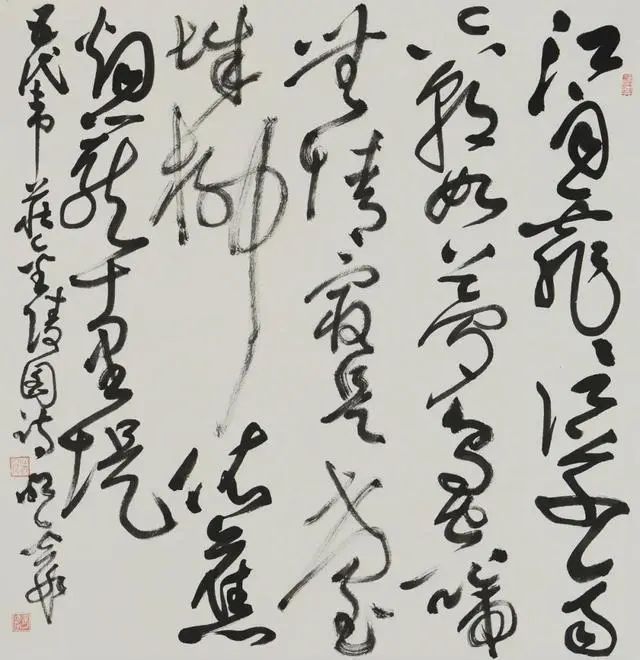 江雨霏霏江草齊
六朝如夢鳥空啼
無情最是臺
城柳依舊
烟籠十里堤
五代韋莊金陵圖詩